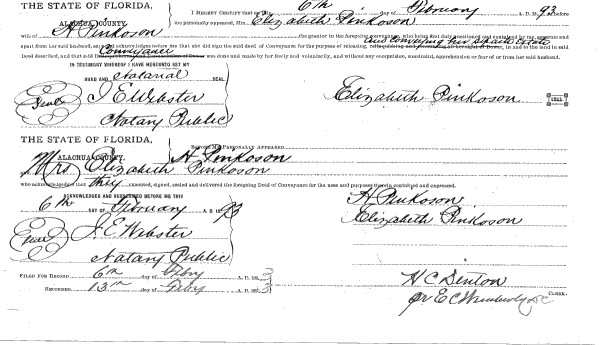 THE STATE OF FLORIDA,
ALACHUA COUNTY.
I HEREBY CERTIFY that on this 6th day of February A. D. 1893 before
me personally appeared, Mrs. Elizabeth Pinkoson
wife of H Pinkoson the grantor in the foregoing conveyance, who being first duly questioned and examined by me, separate and
and conveying her separate estate
apart from her said husband, did acknowledge before me that she did sign the said deed of conveyance for the purpose of releasing, in and to the land in said
Conveyance
Deed described, and that said was done and made by her freely and voluntarily, and without any compulsion, constraint, apprehension or fear of or from her said husband.
IN TESTIMONY WHEREOF I HAVE HEREUNTO SET MY
HAND AND Notarial SEAL
Seal
J E Webster
Elizabeth Pinkoson
SEAL
Notary Public
THE STATE OF FLORIDA,
ALACHUA COUNTY.
BEFORE ME PERSONALLY APPEARED H Pinkoson
Mrs Elizabeth Pinkoson
who acknowledged that they executed, signed, sealed and delivered the foregoing Deed of Conveyance for the uses and purposes therein contained and expressed.
ACKNOWLEDGED AND SUBSCRIBED BEFORE ME THIS
H Pinkoson
6th DAY OF February A. D. 1893
Elizabeth Pinkoson
Seal
J. E Webster
Notary Public
FILED FOR RECORD 6th day of Feby A. D. 1893
H C Denton
RECORDED 13th day of Feby A. D. 1893
CLERK.
pr E C